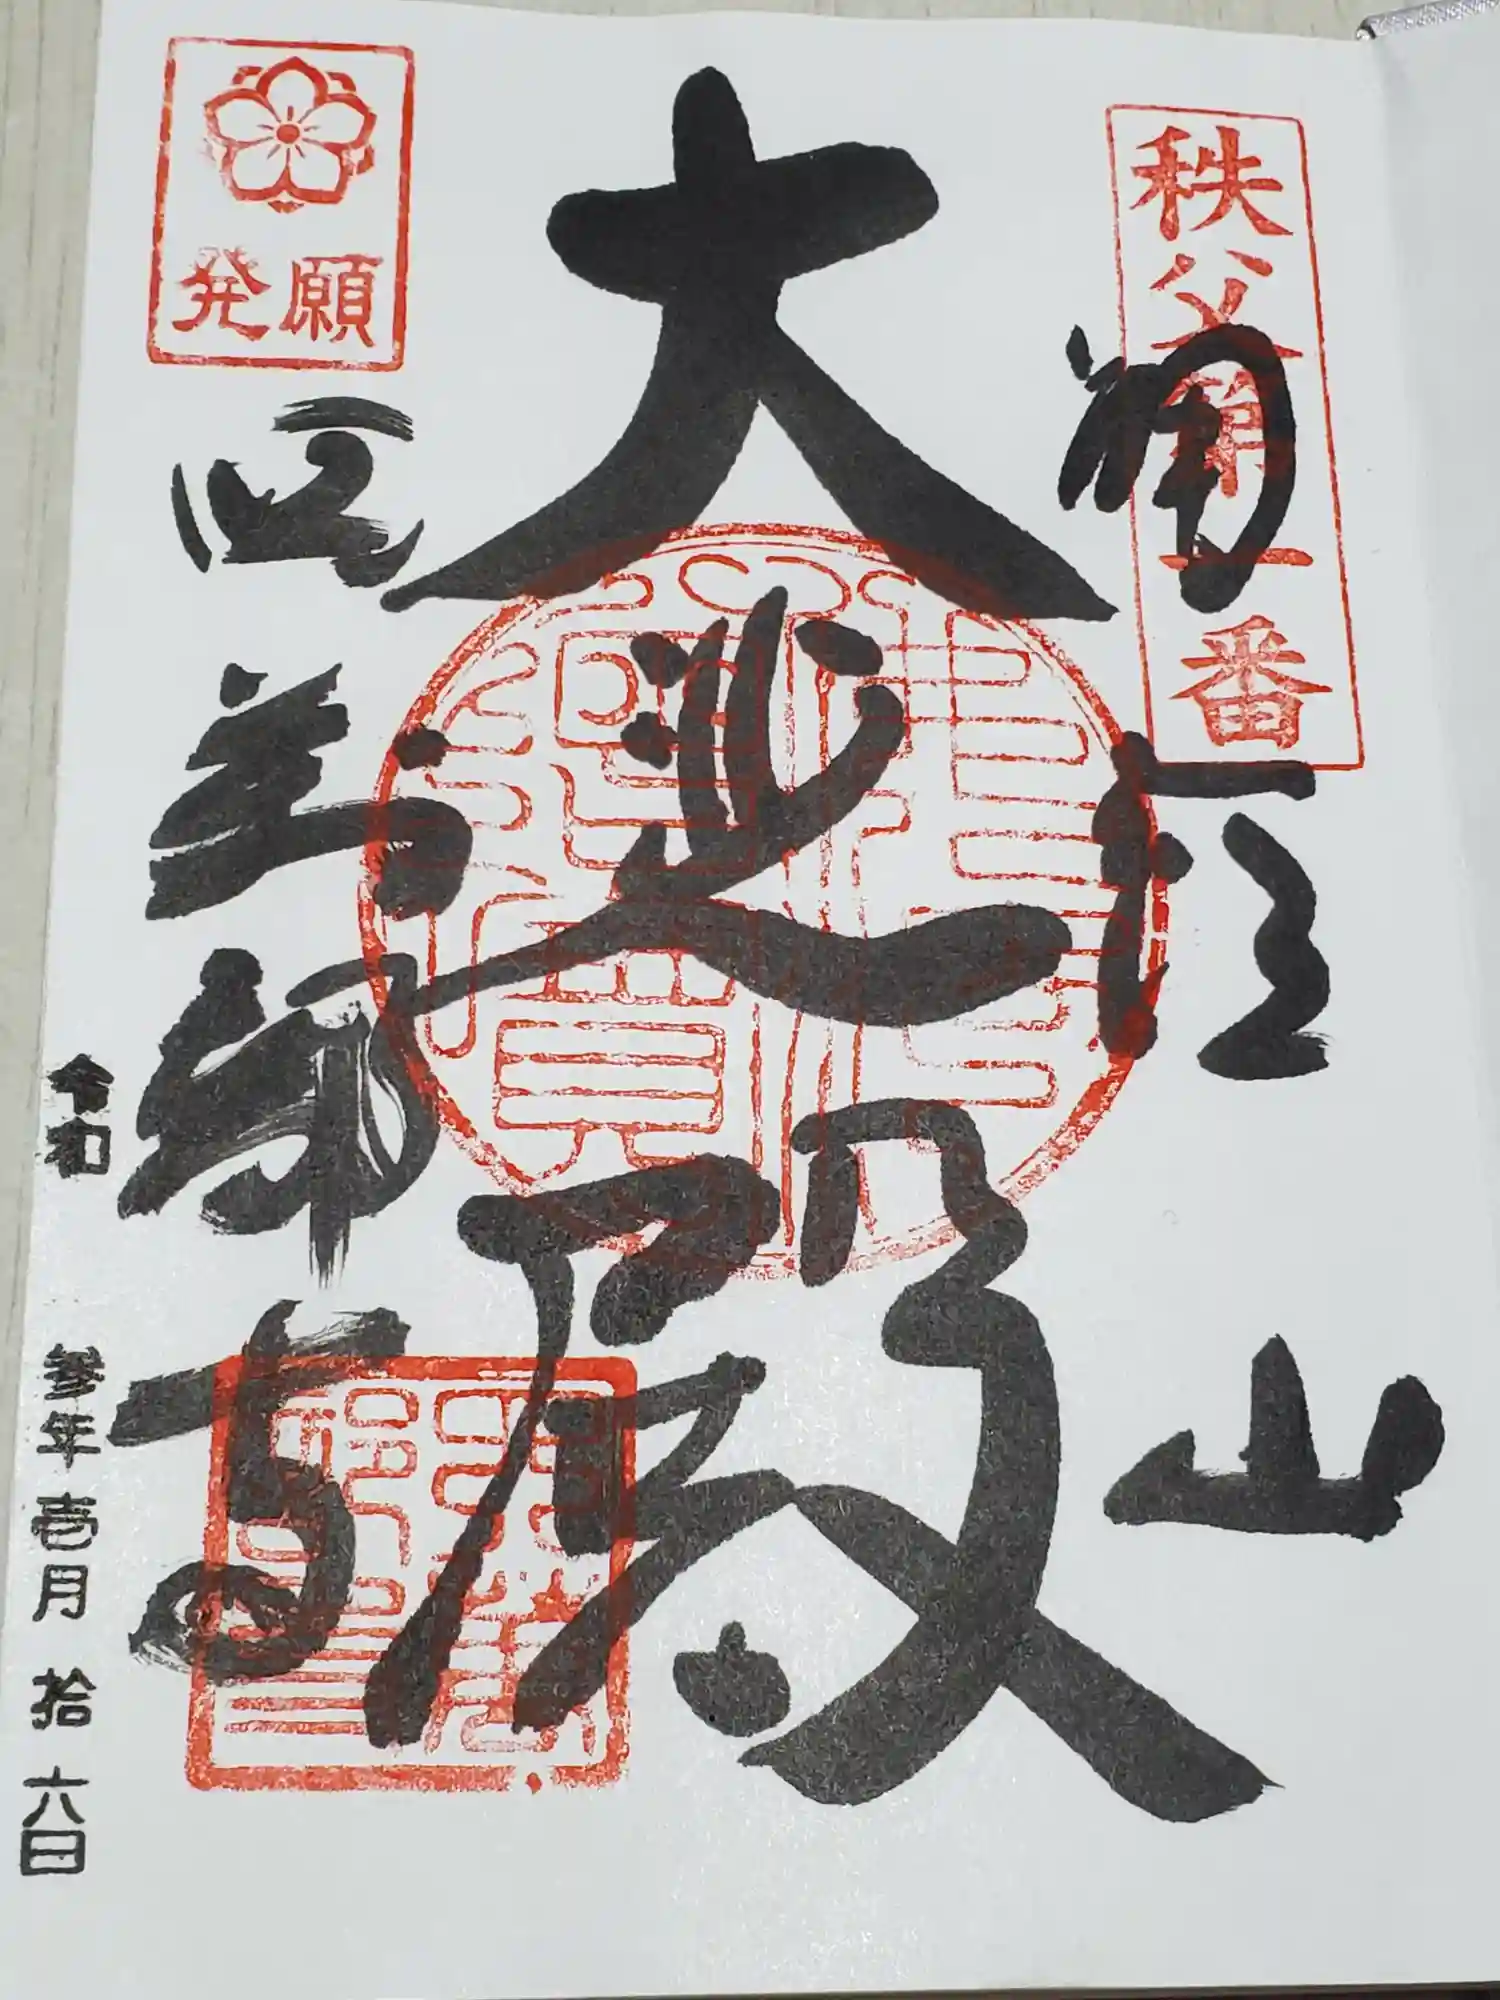 秩父第一番
誦経山
大悲殿
発願
四萬部寺
令和参年壱月拾六日